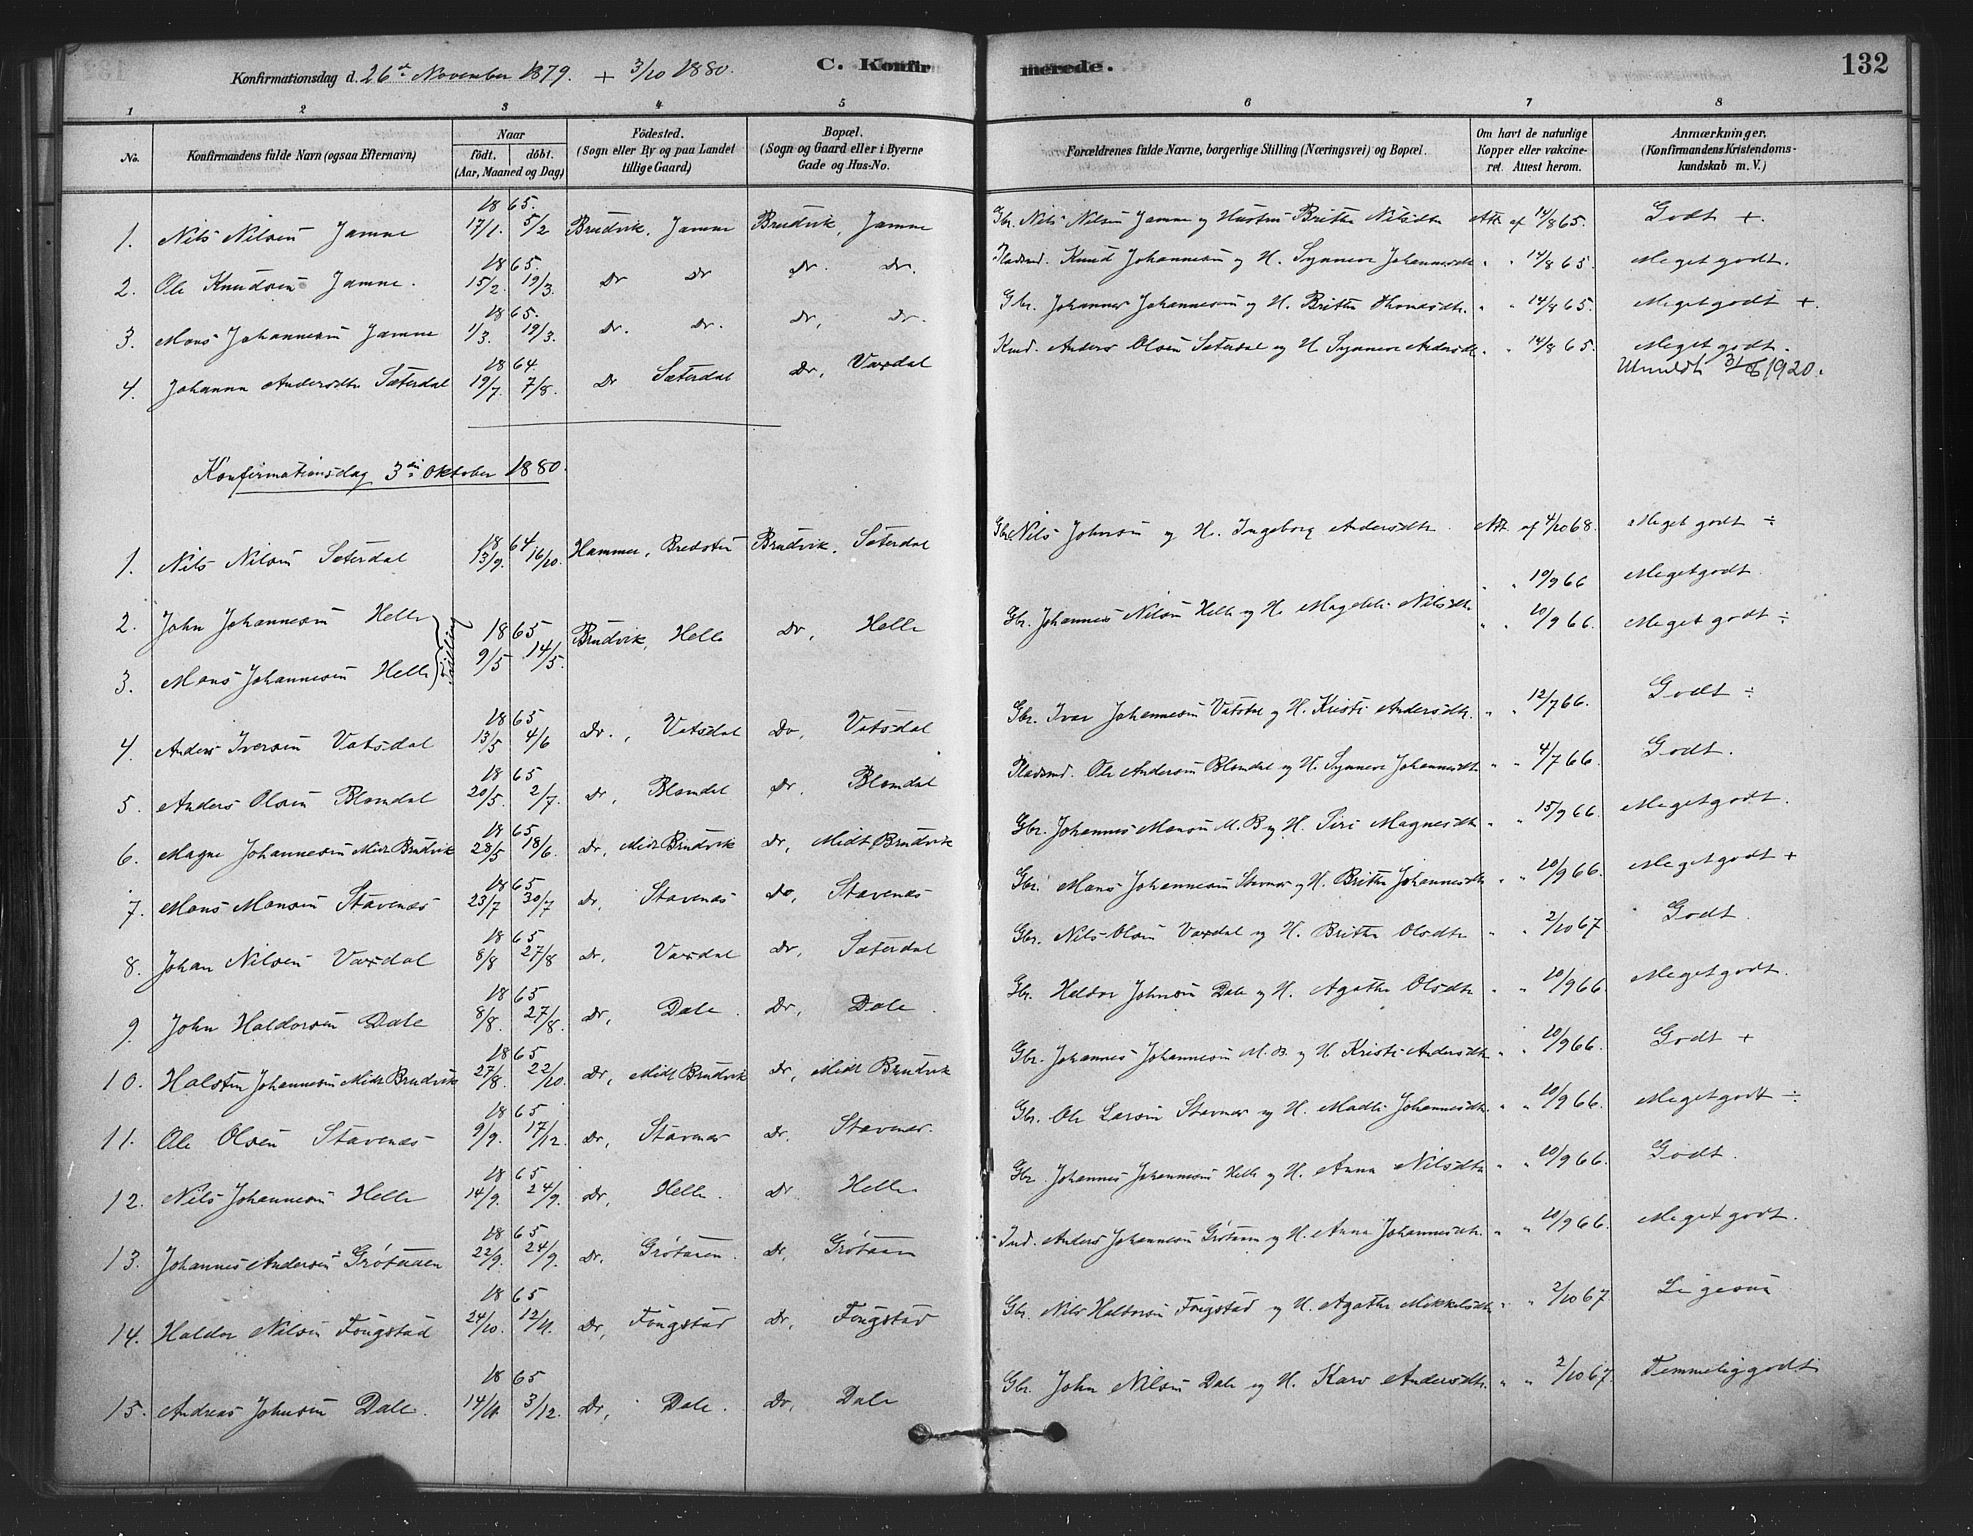 Konfirmationsdag d. 26de November 1879. + 3/10 1880.
C. Konfirmerede.
132
1 2 3 4 5 6 7 8
No.
Konfirmandens fulde Navn (ogsaa Efternavn)
Naar
födt. döbt.
(Aar, Maaned og Dag)
Födested.
(Sogn eller By og paa Landet
tillige Gaard)
Bopæl.
(Sogn og Gaard eller i Byerne
Gade og Hus-No.
Forældrenes fulde Navne, borgerlige Stilling (Næringsvei) og Bopæl.
Om havt de naturlige
Kopper eller vakcine-
ret. Attest herom.
Anmærkninger.
(Konfirmandens Kristendoms-
kundskab m. V.)
1865.
1. Nils Nilsen Jamne 17/1. 5/2 Brudvik, Jamne Brudvik, Jamne Gbr. Nils Nilsen Jamne og Hustru Britha Nilsdtr Att. af 14/8 65. Godt +.
1865.
2. Ole Knudsen Jamne. 15/2. 19/3. Do Do Do. Do. Pladsmd. Knud Johannesen og H. Synneve Johannesdtr " " 14/8 65. Meget godt.
1865.
3. Mons Johannesen Jamne 1/3. 19/3. Do. Do. Do, Do. Gbr. Johannes Johannesen og H. Britha Thomasdtr. " " 14/8 65. Meget godt +.
1864.
4. Johanna Andersdtr Sæterdal 19/7. 7/8. Do Sæterdal Do, Vaxdal Anders Olsen Sæterdal og H Synneve Andersdtr " " 14/8 65. Meget godt.
Utmeldt 31/6 1920.
Konfirmationsdag 3die Oktober 1880.
1864
1. Nils Nilsen Sæterdal 13/9. 16/10. Hammer, Bredsten Brudvik, Sæterdal Gbr. Nils Johnsen og H. Ingeborg Andersdtr. Att. af 4/10 68. Meget godt ÷
2. John Johannesen Helle " " 10/9 66 Meget godt.
Tvilling 1865 9/5 14/5. Brudvik, Helle Do, Helle Gbr. Johannes Nilsen Helle og H. Magdeli Nilsdtr
3. Mons Johannesen Helle " " 10/9 66. Meget godt ÷
1865
4. Anders Iversen Vatsdal 13/5 4/6 Do., Vatsdal Do, Vatsdal Gbr. Ivar Johannesen Vatsdal og H. Kristi Andersdtr. " " 12/7 66. Godt ÷
1865
5. Anders Olsen Blomdal 20/5. 2/7. Do, Blomdal Do. Blomdal Pladsmd. Ole Andersen Blomdal og H. Synneve Johannesdtr " " 4/7 66. Godt.
1865
6. Magne Johannesen Midt Brudvik 28/5 18/6. Do, Midt Brudvik Do, Midt Brudvik Gbr. Johannes Monsen M. B og H. Siri Magnesdtr " " 15/9 66. Meget godt.
1865
7. Mons Monsen Stavenæs 23/7 30/7 Do, Stavenæs Do, Stavenæs Gbr. Mons Johannesen Stavnes og H. Britha Johannesdtr " " 10/9 66. Meget godt +
1865
8. Johan Nilsen Vaxdal 8/8 27/8 Do, Vaxdal Do, Sæterdal Gbr. Nils Olsen Vaxdal og H. Britha Olsdtr " " 2/10 67 Godt.
1865
9 John Haldorsen Dale 8/8. 27/8. Do, Dale. Do, Dale. Gbr. Haldor Johnsen Dale og H. Agatha Olsdtr " " 10/9 66. Meget godt.
1865
10. Halsten Johannesen Midt Brudvik 27/8. 22/10. Do, Midt Brudvik Do, Midt Brudvik Gbr. Johannes Johannesen M. B. og H Kristi Andersdtr " " 10/9 66. Godt +
1865
11. Ole Olsen Stavenæs 9/9. 17/12. Do, Stavnes Do. Stavenes. Gbr. Ole Larsen Stavnes og H. Madli Johannesdtr " " 10/9 66. Meget godt ÷
1865
12. Nils Johannesen Helle 14/9. 24/9. Do, Helle. Do, Helle Gbr. Johannes Johannesen Helle og H. Anna Nilsdtr " " 10/9 66. Godt.
1865
13. Johannes Andersen Grötuaen 22/9. 24/9. Do, Grötuen. Do, Grötuen Ind. Anders Johannesen Grötuen og H. Anna Johannesdtr. " " 10/9 66. Meget godt.
1865
14. Haldor Nilsen Fougstad 24/10. 12/11. Do, Fougstad Do, Fougstad Gbr. Nils Haldorsen Fougstad og H. Agatha Mikkelsdtr " " 2/10 67.
1865
15. Andreas Johnsen Dale. 14/11. 3/12. Do, Dale. Do, Dale Gbr. John Nilsen Dale og H. Kari Andersdtr. " " 2/10 67. Temmelig godt